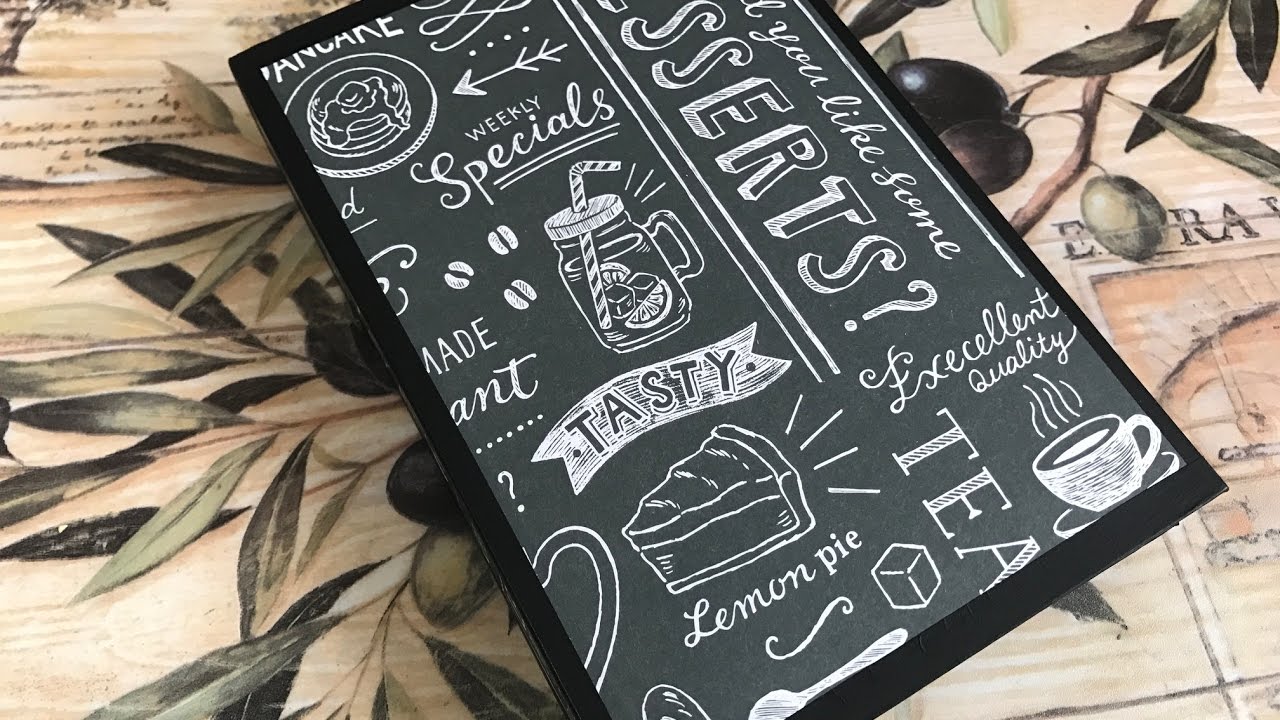 PANCAKE
WEEKLY
Specials
d you like some
SSERTS?
MADE
ant
?
TASTY
Lemon pie
Execellent
Quality
TEA